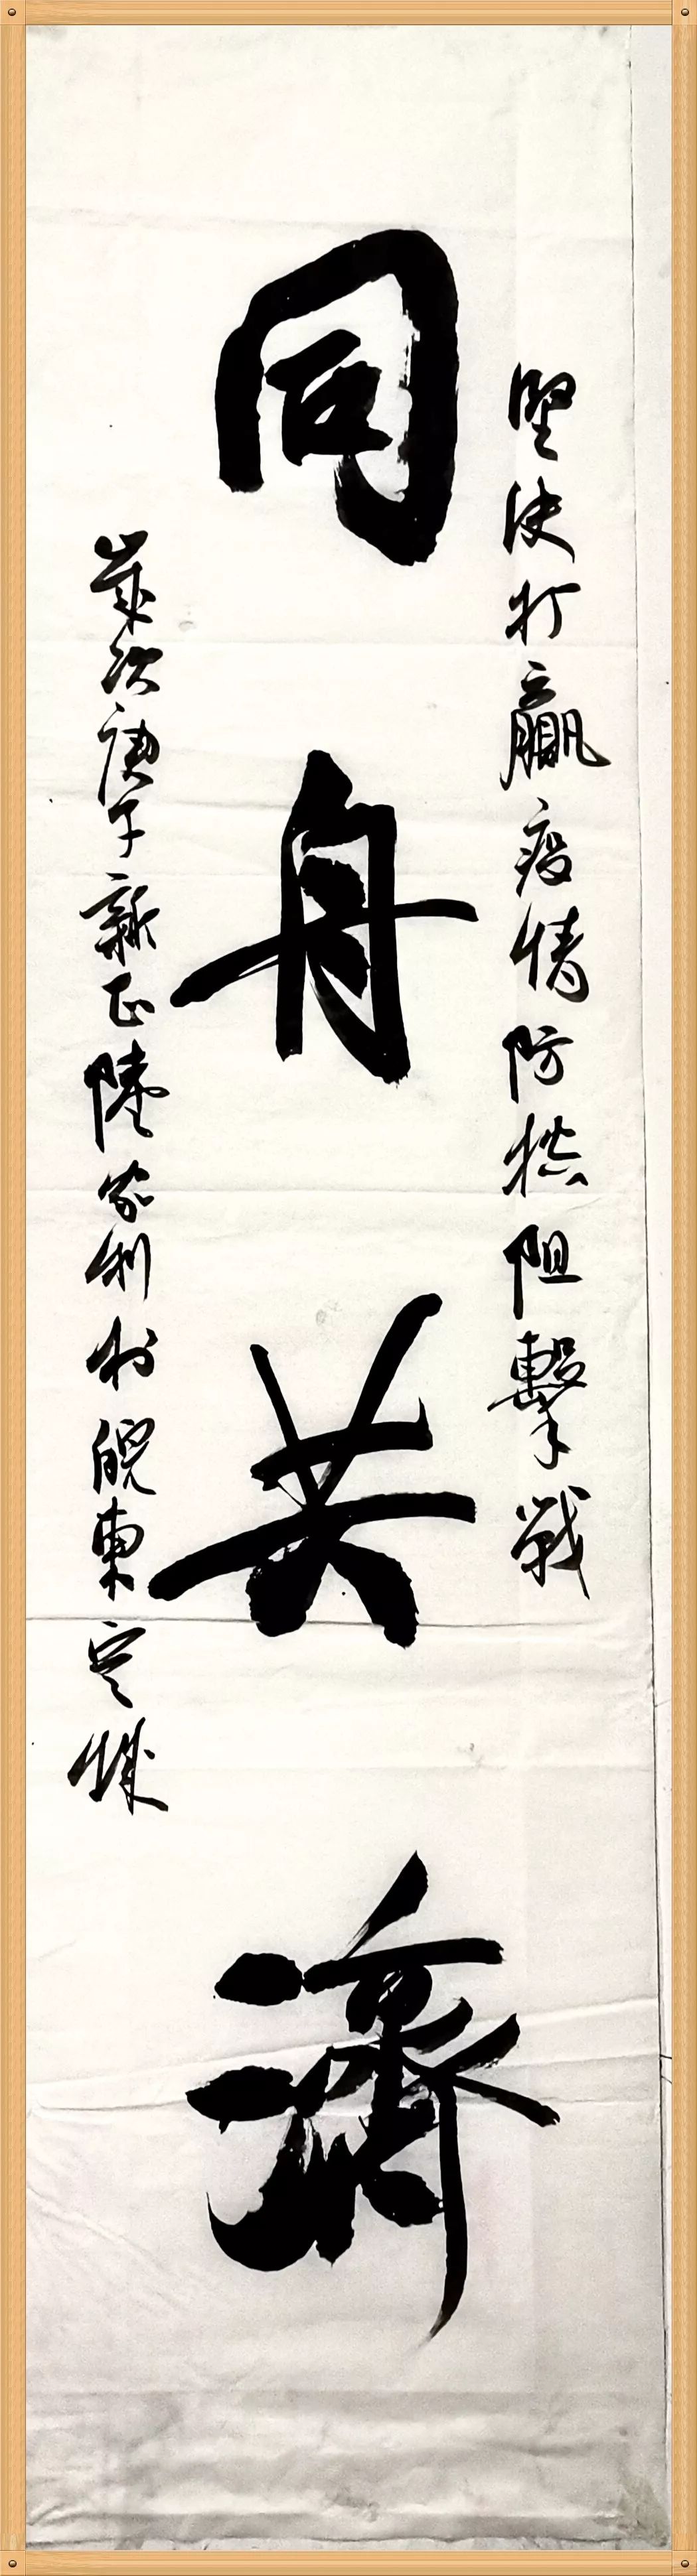 堅決打贏疫情防控阻擊戰
同舟共濟
歲次庚子新正陸家利於皖東定城